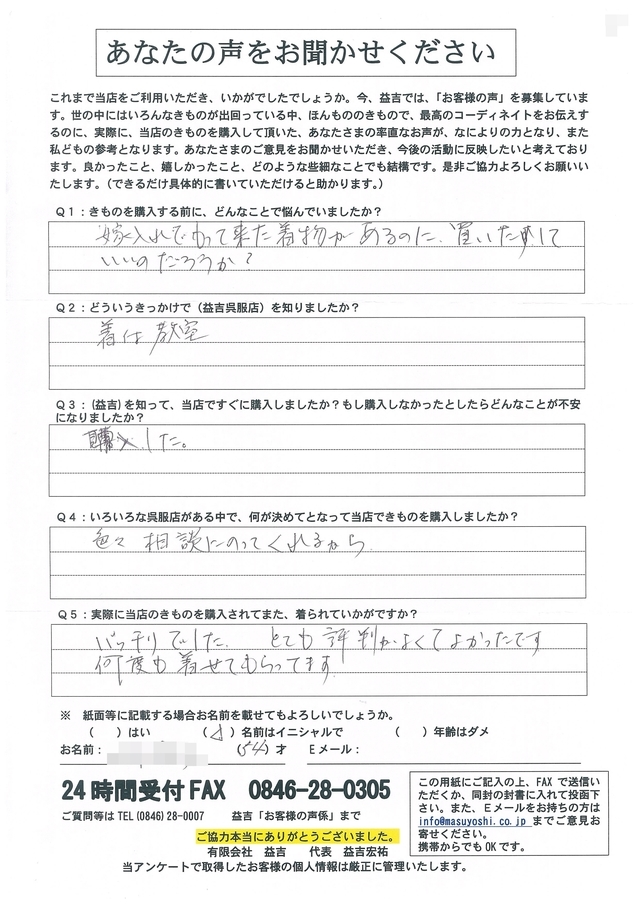 あなたの声をお聞かせください
これまで当店をご利用いただき、いかがでしたでしょうか。今、益吉では、「お客様の声」を募集していま
す。世の中にはいろんなきものが出回っている中、ほんもののきもので、最高のコーディネイトをお伝えす
るのに、実際に、当店のきものを購入して頂いた、あなたさまの率直なお声が、なによりの力となり、また
私どもの参考となります。あなたさまのご意見をお聞かせいただき、今後の活動に反映したいと考えており
ます。良かったこと、嬉しかったこと、どのような些細なことでも結構です。是非ご協力よろしくお願いい
たします。（できるだけ具体的に書いていただけると助かります。）
Q1：きものを購入する前に、どんなことで悩んでいましたか？
嫁入れでもって来た着物があるのに、買いたして
いいのだろうか？
Q2：どういうきっかけで（益吉呉服店）を知りましたか？
着付教室
Q3：(益吉)を知って、当店ですぐに購入しましたか？もし購入しなかったとしたらどんなことが不安
になりましたか？
購入した。
Q4：いろいろな呉服店がある中で、何が決めてとなって当店できものを購入しましたか？
色々 相談にのってくれるから
Q5：実際に当店のきものを購入されてまた、着られていかがですか？
バッチリでした。 とても評判がよくてよかったです
何度も着せてもらってます
※ 紙面等に記載する場合お名前を載せてもよろしいでしょうか。
（ ）はい （ ）名前はイニシャルで （ ）年齢はダメ
お名前： （54）才 Ｅメール：
24時間受付FAX 0846-28-0305
ご質問等はTEL(0846)28-0007 益吉「お客様の声係」まで
ご協力本当にありがとうございました。
有限会社 益吉 代表 益吉宏祐
当アンケートで取得したお客様の個人情報は厳正に管理いたします。
この用紙にご記入の上、FAXで送信い
ただくか、同封の封書に入れて投函下
さい。また、Ｅメールをお持ちの方は
info@masuyoshi.co.jpまでご意見お
寄せください。
携帯からでもOKです。